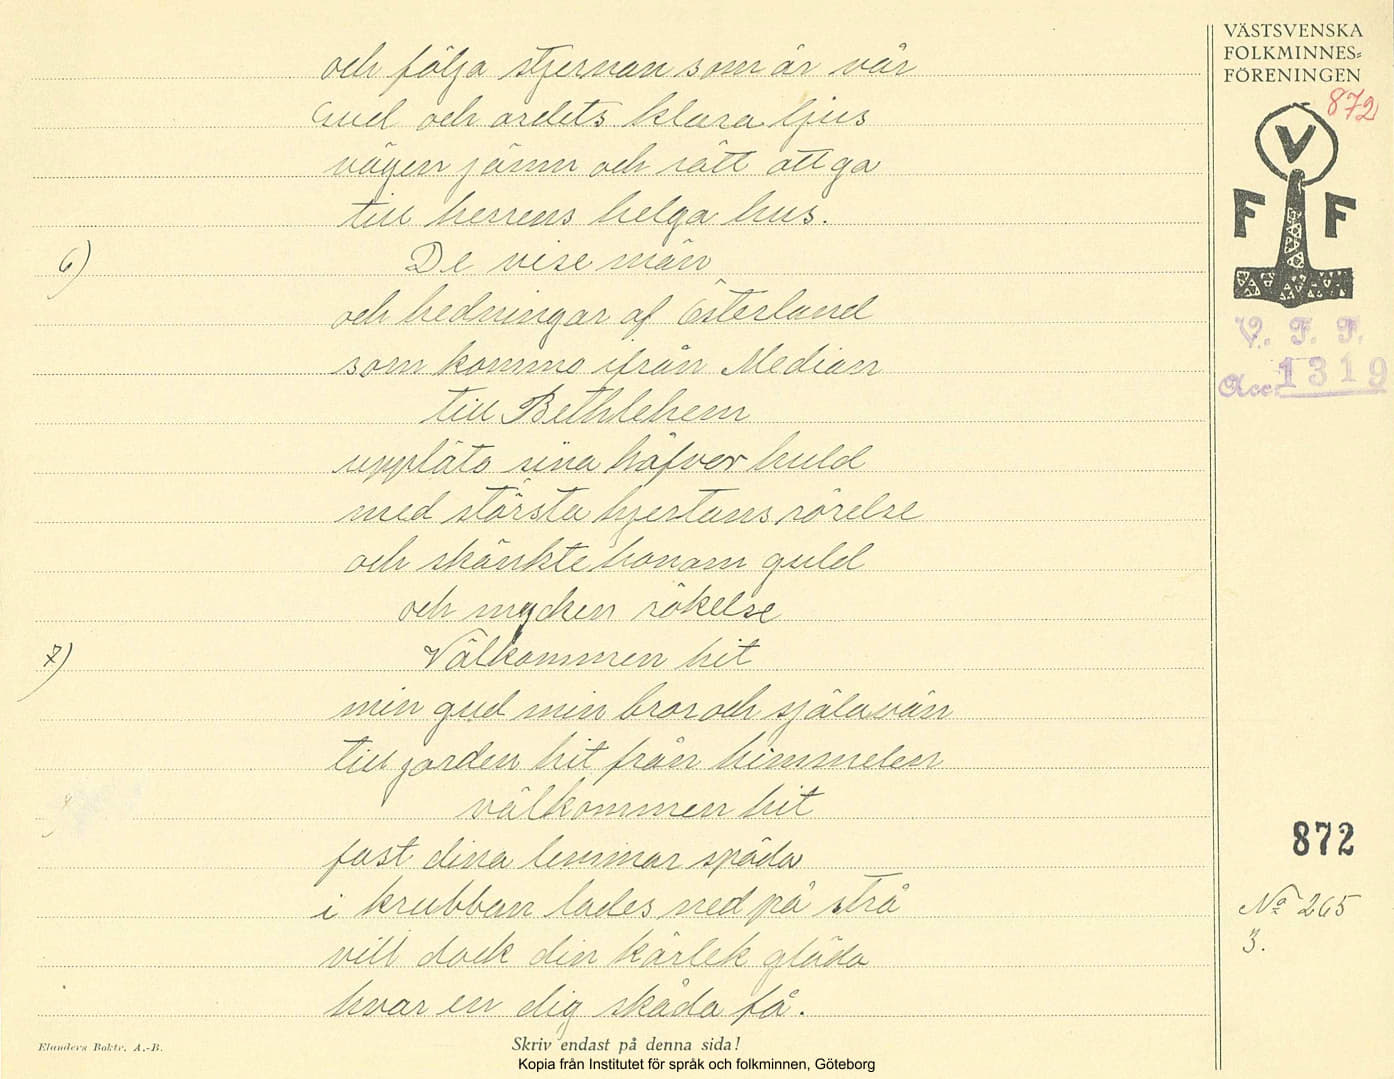 VÄSTSVENSKA
FOLKMINNES=
FÖRENINGEN
872
V
F F
V. F. F.
Acc. 1319
och följa stjernan som är vår
Gud och ordets klara ljus
vägen jämn och rätt att ga
till herrens helga hus.
6) De vise män
och hedningar af Österland
som kommo ifrån Median
till Bethlehem
uppläto sina håfvor huld
med största hjertans rörelse
och skänkte honom guld
och mycken rökelse
7) Välkommen hit
min gud min bror och själavän
till jorden hit från himmelen
välkommen hit
fast dina lemmar späda
i krubban lades ned på strå
vill dock din kärlek gläda
hvar en dig skåda få.
872
No 265
3.
Elanders Boktr. A.-B.
Skriv endast på denna sida!
Kopia från Institutet för språk och folkminnen, Göteborg